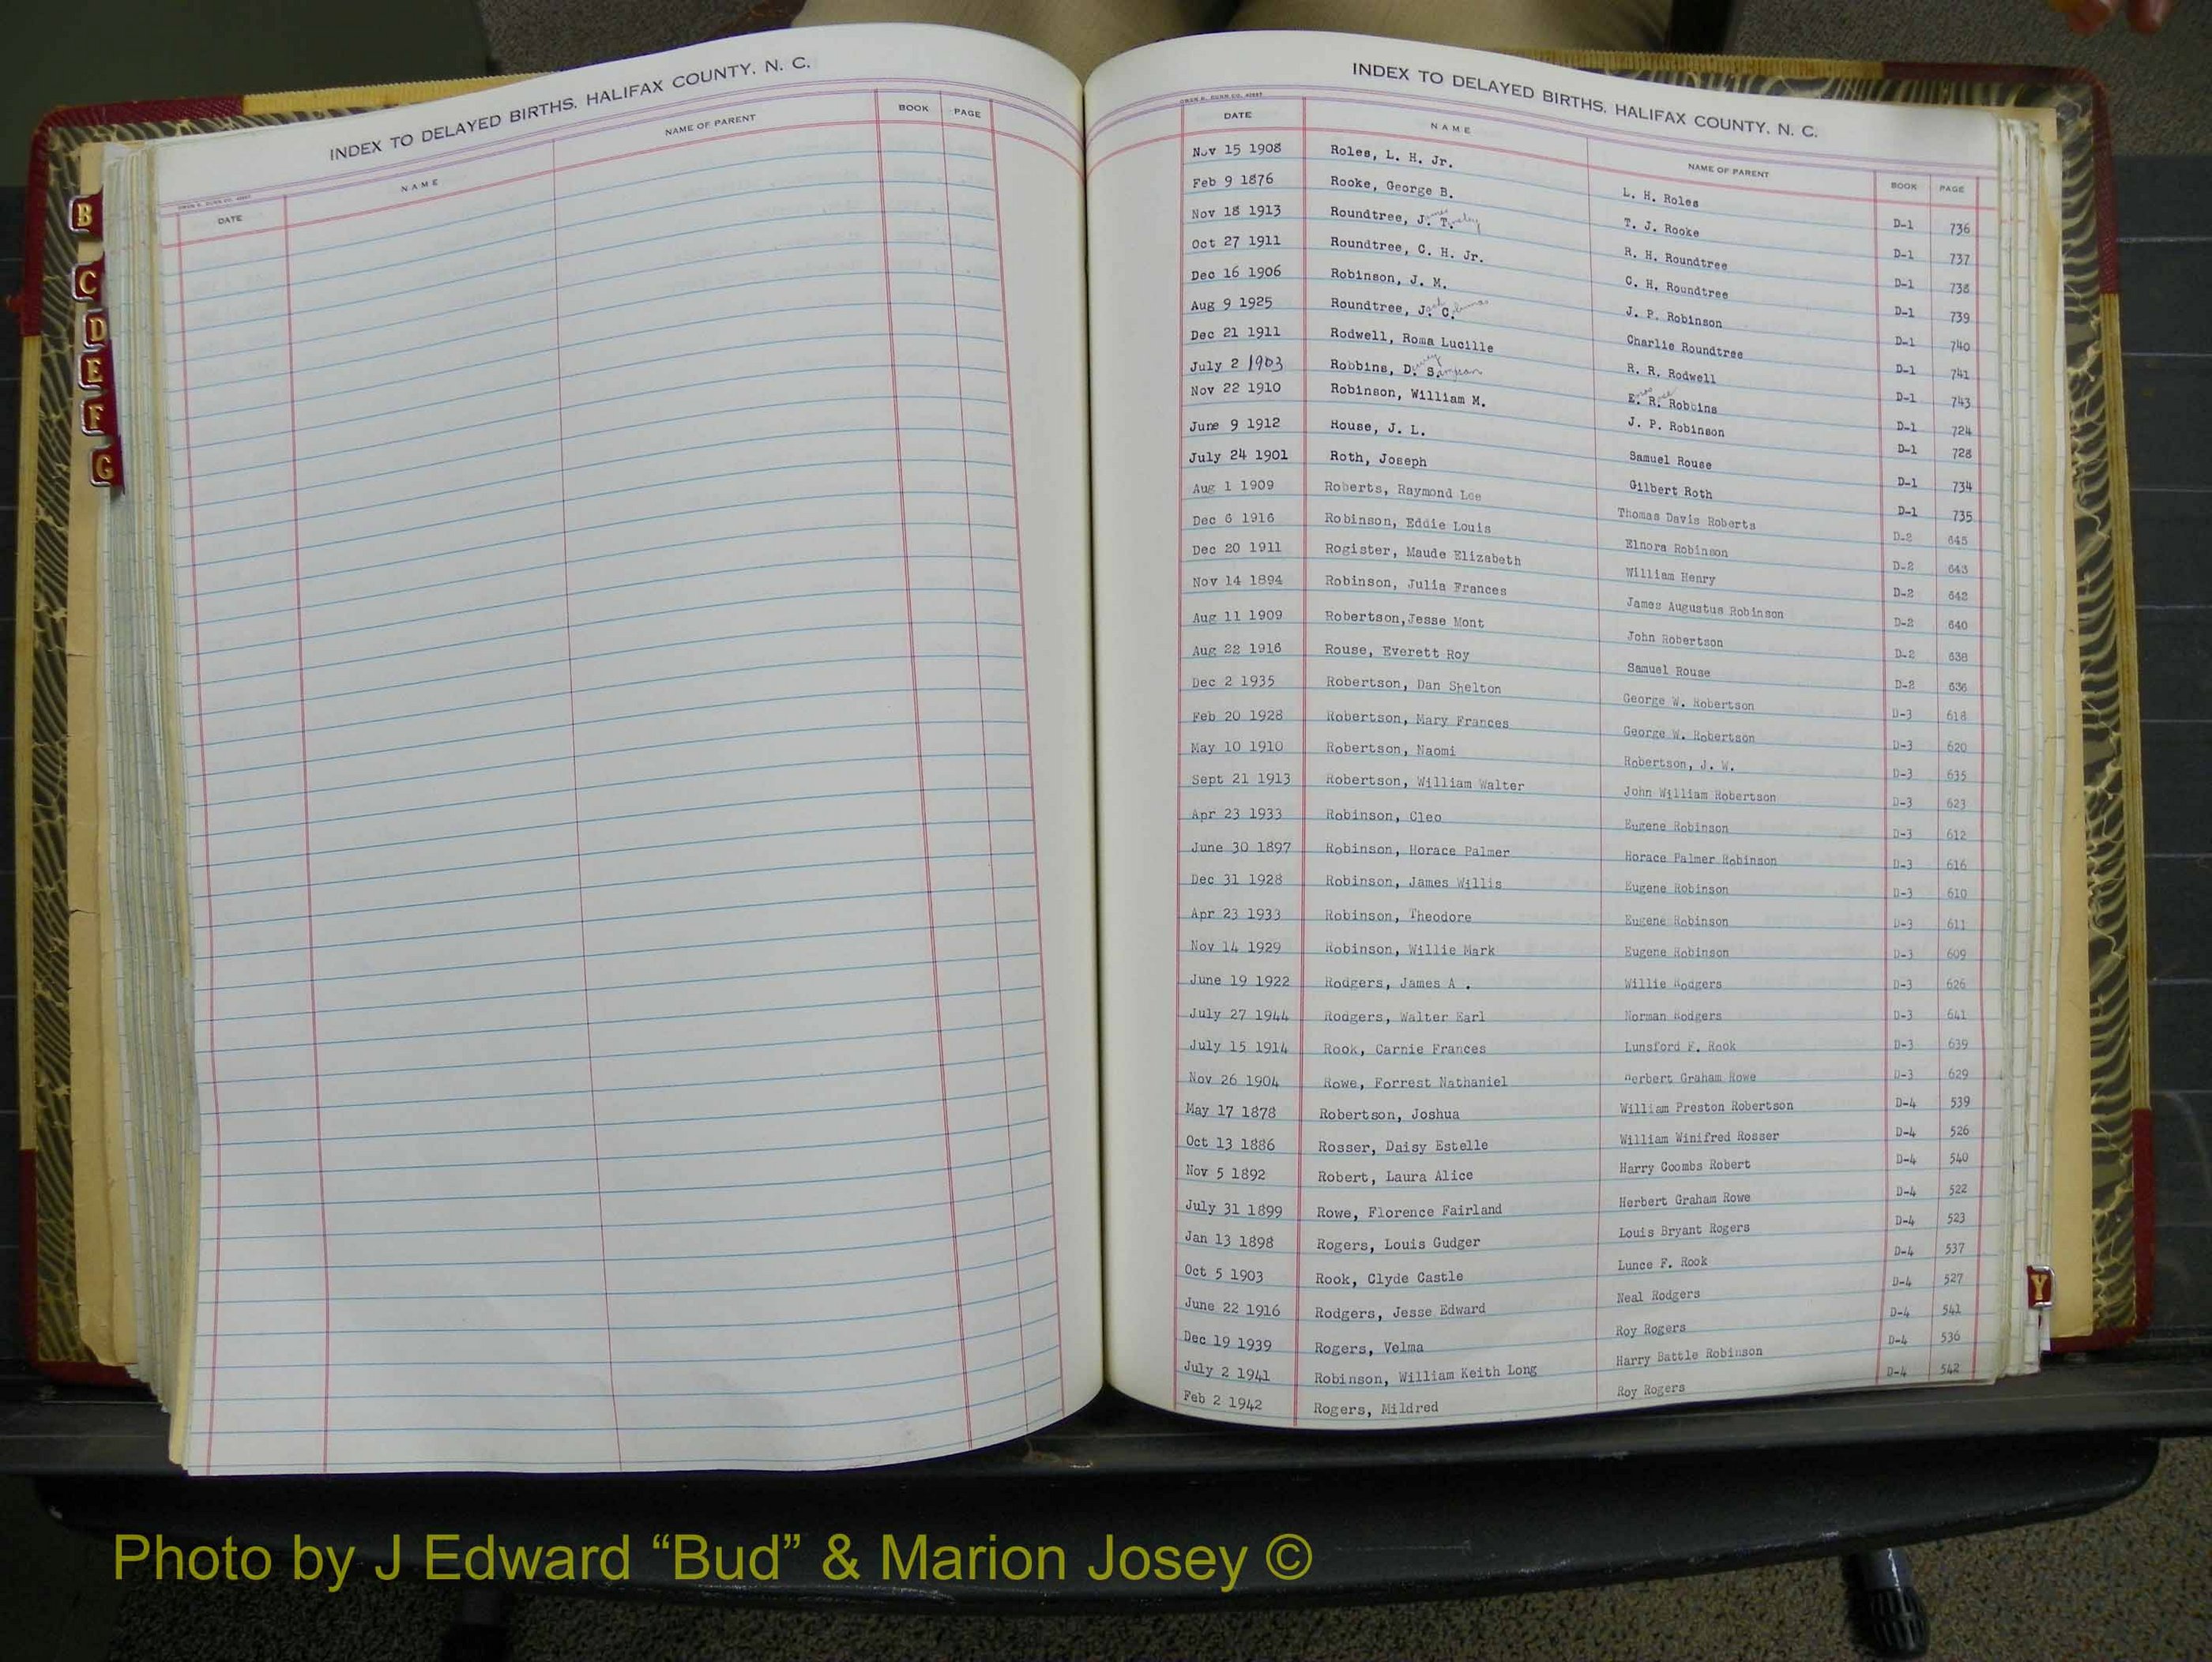 INDEX TO DELAYED BIRTHS, HALIFAX COUNTY, N. C.
DATE NAME NAME OF PARENT BOOK PAGE
B
C
D
E
F
G
INDEX TO DELAYED BIRTHS, HALIFAX COUNTY, N. C.
DATE NAME NAME OF PARENT BOOK PAGE
Nov 15 1908 Roles, L. H. Jr. L. H. Roles D-1 736
Feb 9 1876 Rooke, George B. T. J. Rooke D-1 737
Nov 18 1913 Roundtree, J. T. R. H. Roundtree D-1 738
Oct 27 1911 Roundtree, C. H. Jr. C. H. Roundtree D-1 739
Dec 16 1906 Robinson, J. M. J. P. Robinson D-1 740
Aug 9 1925 Roundtree, J. C. Charlie Roundtree D-1 741
Dec 21 1911 Rodwell, Roma Lucille R. R. Rodwell D-1 743
July 2 1903 Robbins, D. S. E. R. Robbins D-1 724
Nov 22 1910 Robinson, William M. J. P. Robinson D-1 728
June 9 1912 House, J. L. Samuel Rouse D-1 734
July 24 1901 Roth, Joseph Gilbert Roth D-1 735
Aug 1 1909 Roberts, Raymond Lee Thomas Davis Roberts D-2 645
Dec 6 1916 Robinson, Eddie Louis Elnora Robinson D-2 643
Dec 20 1911 Rogister, Maude Elizabeth William Henry D-2 642
Nov 14 1894 Robinson, Julia Frances James Augustus Robinson D-2 640
Aug 11 1909 Robertson,Jesse Mont John Robertson D-2 638
Aug 22 1916 Rouse, Everett Roy Samuel Rouse D-2 636
Dec 2 1935 Robertson, Dan Shelton George W. Robertson D-3 618
Feb 20 1928 Robertson, Mary Frances George W. Robertson D-3 620
May 10 1910 Robertson, Naomi Robertson, J. W. D-3 635
Sept 21 1913 Robertson, William Walter John William Robertson D-3 623
Apr 23 1933 Robinson, Cleo Eugene Robinson D-3 612
June 30 1897 Robinson, Horace Palmer Horace Palmer Robinson D-3 616
Dec 31 1928 Robinson, James Willis Eugene Robinson D-3 610
Apr 23 1933 Robinson, Theodore Eugene Robinson D-3 611
Nov 14 1929 Robinson, Willie Mark Eugene Robinson D-3 609
June 19 1922 Rodgers, James A . Willie Rodgers D-3 626
July 27 1944 Rodgers, Walter Earl Norman Rodgers D-3 641
July 15 1914 Rook, Carnie Frances Lunsford F. Rook D-3 639
Nov 26 1904 Rowe, Forrest Nathaniel Herbert Graham Rowe D-3 629
May 17 1878 Robertson, Joshua William Preston Robertson D-4 539
Oct 13 1886 Rosser, Daisy Estelle William Winifred Rosser D-4 526
Nov 5 1892 Robert, Laura Alice Harry Coombs Robert D-4 540
July 31 1899 Rowe, Florence Fairland Herbert Graham Rowe D-4 522
Jan 13 1898 Rogers, Louis Gudger Louis Bryant Rogers D-4 523
Oct 5 1903 Rook, Clyde Castle Lunce F. Rook D-4 537
June 22 1916 Rodgers, Jesse Edward Neal Rodgers D-4 527
Dec 19 1939 Rogers, Velma Roy Rogers D-4 541
July 2 1941 Robinson, William Keith Long Harry Battle Robinson D-4 536
Feb 2 1942 Rogers, Mildred Roy Rogers D-4 542
Y
Photo by J Edward “Bud” & Marion Josey ©